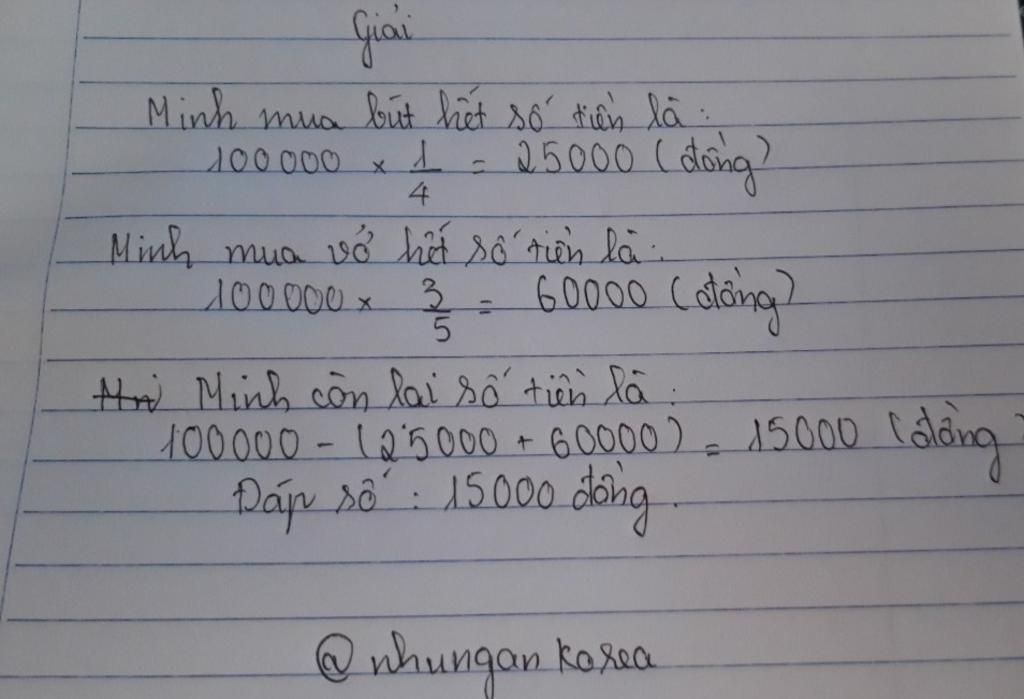 Giải
Minh mua bút hết số tiền là:
100000 × 1/4 = 25000 (đồng)
Minh mua vở hết số tiền là:
100000 × 3/5 = 60000 (đồng)
Minh còn lại số tiền là:
100000 - (25000 + 60000) = 15000 (đồng)
Đáp số: 15000 đồng.
@nhungan korea